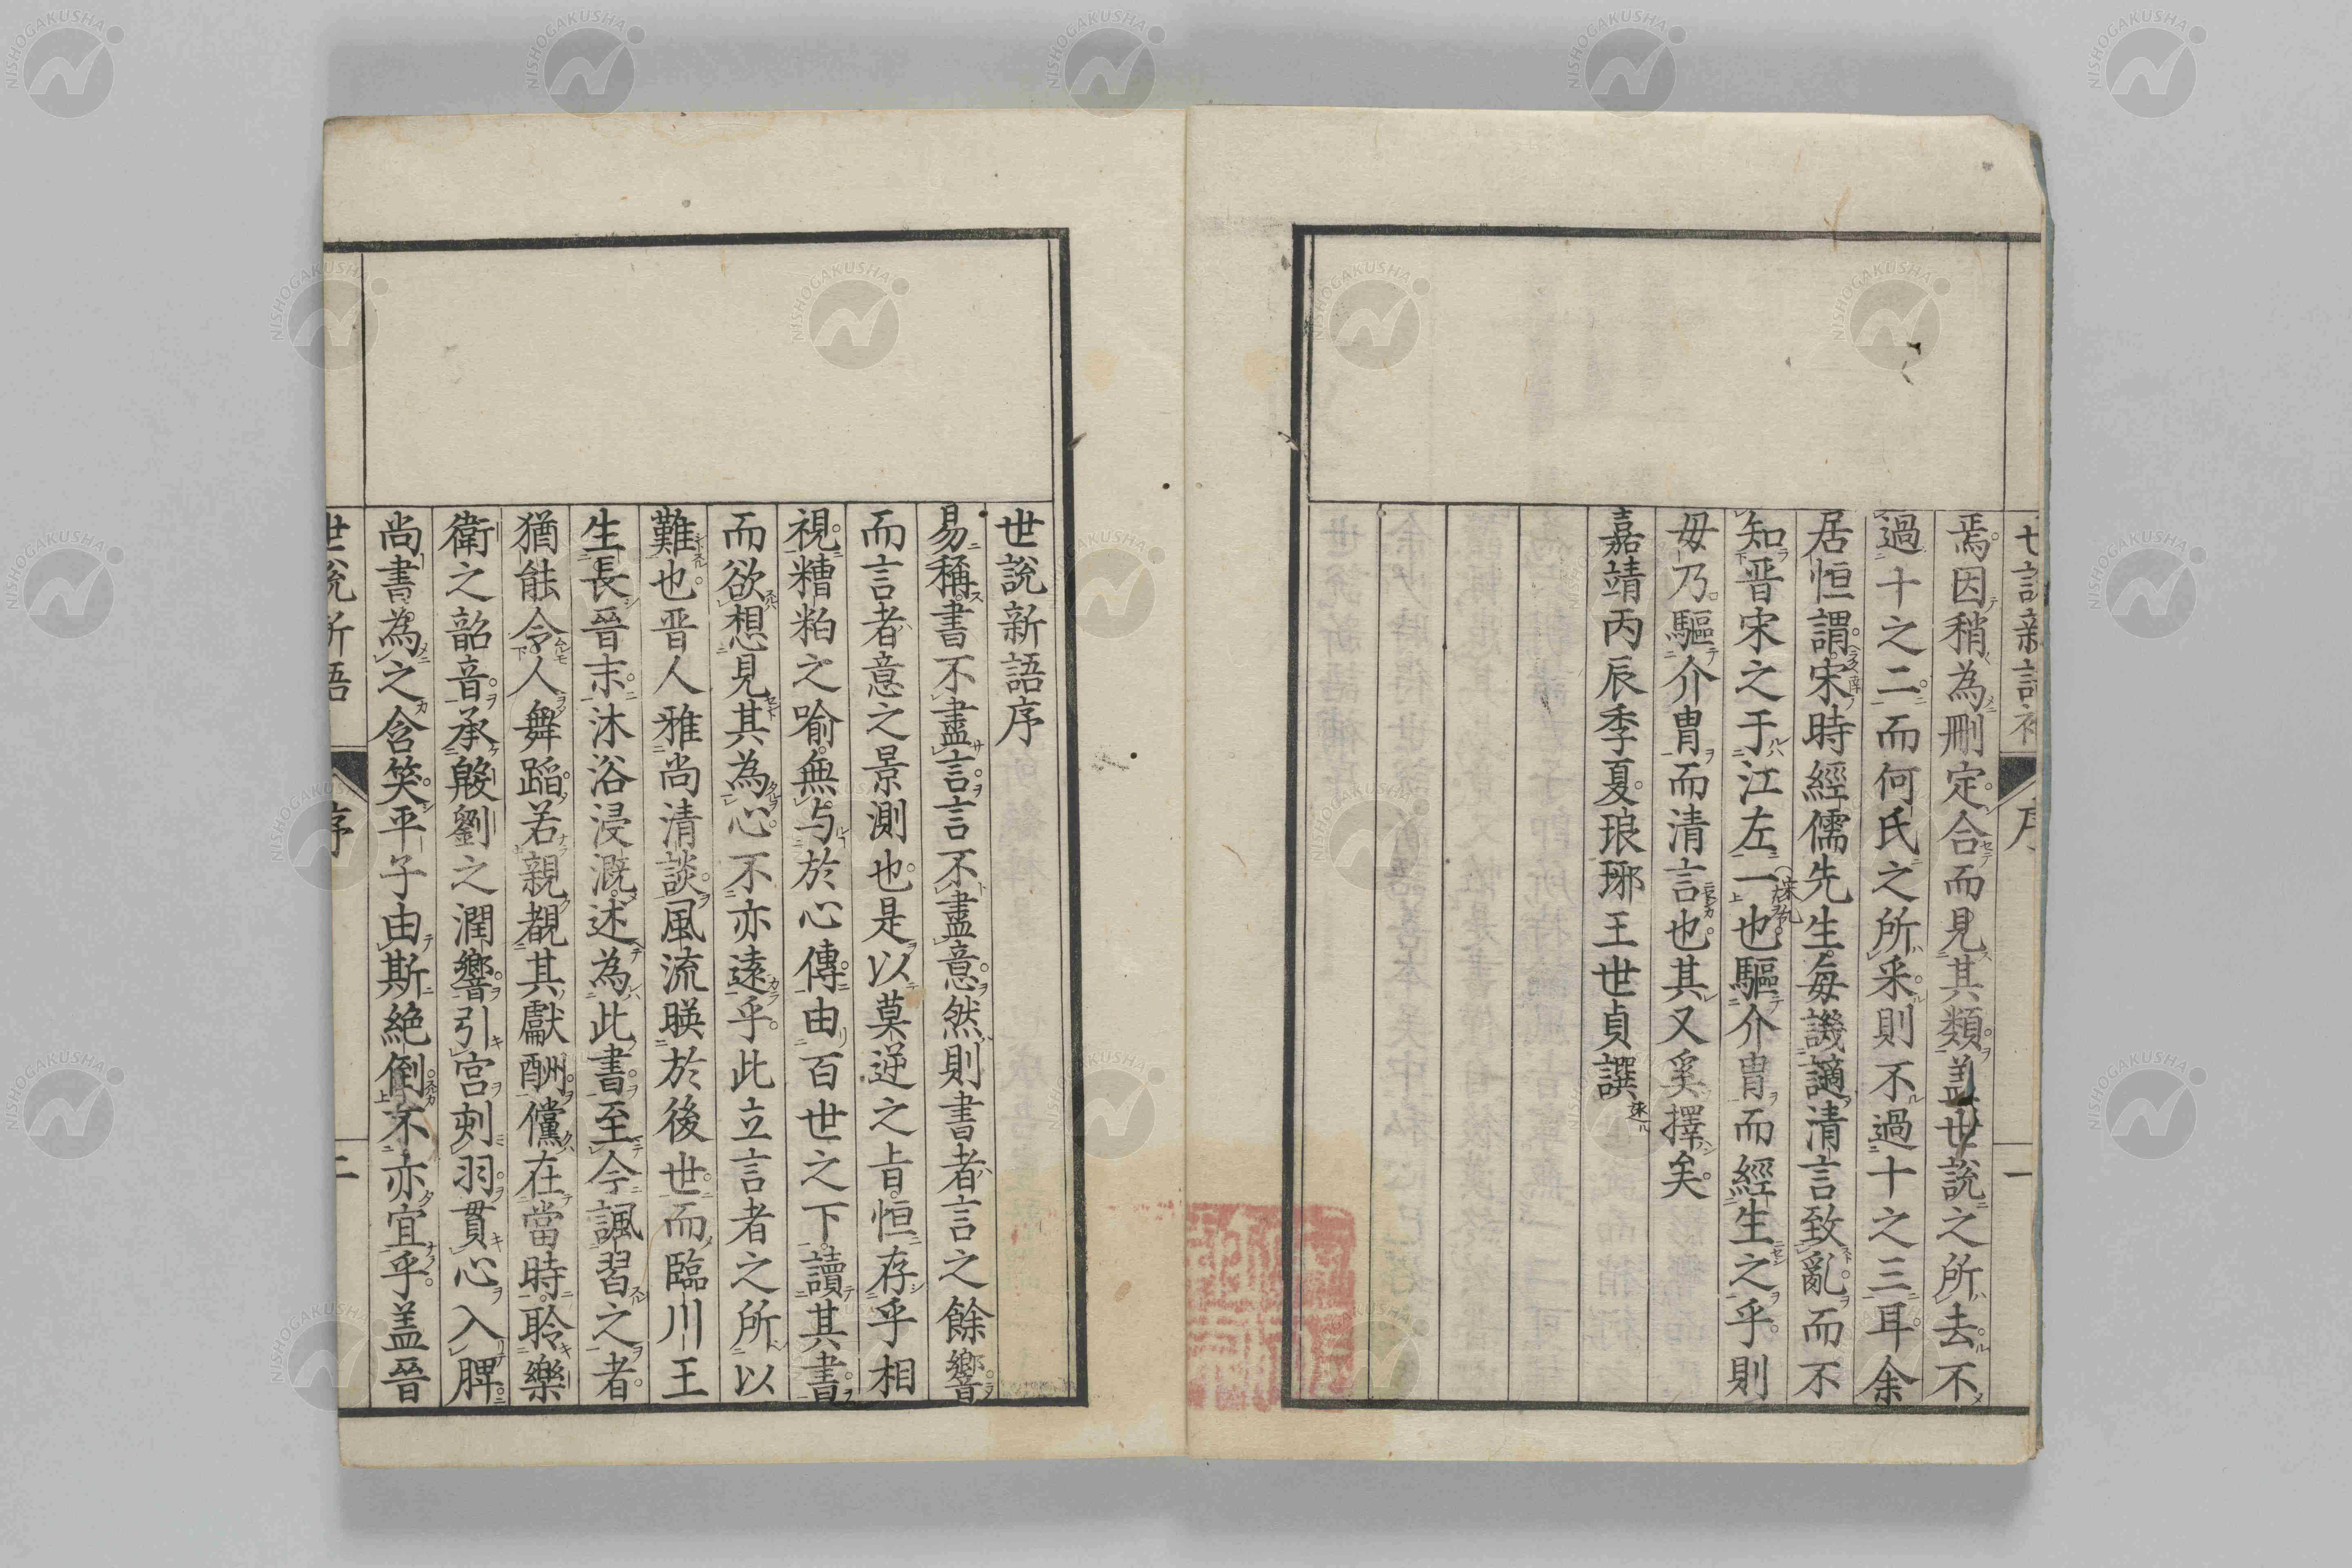 焉因稍為刪定合而見其類盖世說之所去不
過十之二而何氏之所采則不過十之三耳余
居恒謂宋時經儒先生每譏謫清言致亂而不
知晋宋之于江左一也驅介胄而經生之乎則
毋乃驅介胄而清言也其又奚擇矣
嘉靖丙辰季夏琅琊王世貞譔
世說新語序
易稱書不盡言言不盡意然則書者言之餘響
而言者意之景測也是以莫逆之旨恒存乎相
視糟粕之喻無与於心傳由百世之下讀其書
而欲想見其為心不亦遠乎此立言者之所以
難也晋人雅尚清談風流暎於後世而臨川王
生長晉末沐浴浸溉述為此書至今諷習之者
猶能令人舞蹈若親覩其獻酬儻在當時聆樂
衛之韶音承殷劉之潤響引宮刻羽貫心入脾
尚書為之含笑平子由斯絶倒不亦宜乎盖晉
世說新語
序
二
NISHOGAKUSHA